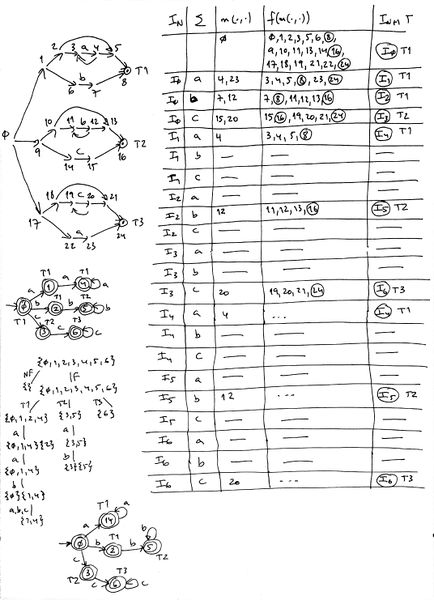 I_N Σ m(·,·) f(m(·,·)) I_NM T
φ φ,1,2,3,5,6,8, 9,10,11,13,14,16, 17,18,19,21,22,24 I0 T1
I0 a 4,23 3,4,5,8,23,24 I1 T1
I0 b 7,12 7,8,11,12,13,16 I2 T1
I0 c 15,20 15,16,19,20,21,24 I3 T2
I1 a 4 3,4,5,8 I4 T1
I1 b — — —
I1 c — — —
I2 a — — —
I2 b 12 11,12,13,16 I5 T2
I2 c — — —
I3 a — — —
I3 b — — —
I3 c 20 19,20,21,24 I6 T3
I4 a 4 ... I4 T1
I4 b — — —
I4 c — — —
I5 a — — —
I5 b 12 ... I5 T2
I5 c — — —
I6 a — — —
I6 b — — —
I6 c 20 ... I6 T3
2 3 a 4 5
1 8 T1
6 b 7
10 11 b 12 13
φ 9 16 T2
14 c 15
18 19 c 20 21
17 24 T3
22 a 23
T1 T1
a 1 a 4 a
φ b 2 b 5 b
T1 c 3 c 6 c
{φ,1,2,3,4,5,6}
NF F
{} {φ,1,2,3,4,5,6}
T1 T2 T3
{φ,1,2,4} {3,5} {6}
a a
{φ,1,4}{2} {3,5}
a b
{φ,1,4} {3}{5}
b
{φ}{1,4}
a,b,c
{1,4}
T1
a 14 a
φ b 2 b 5 b
T1 T2
c
T2 3 c 6 c
T3